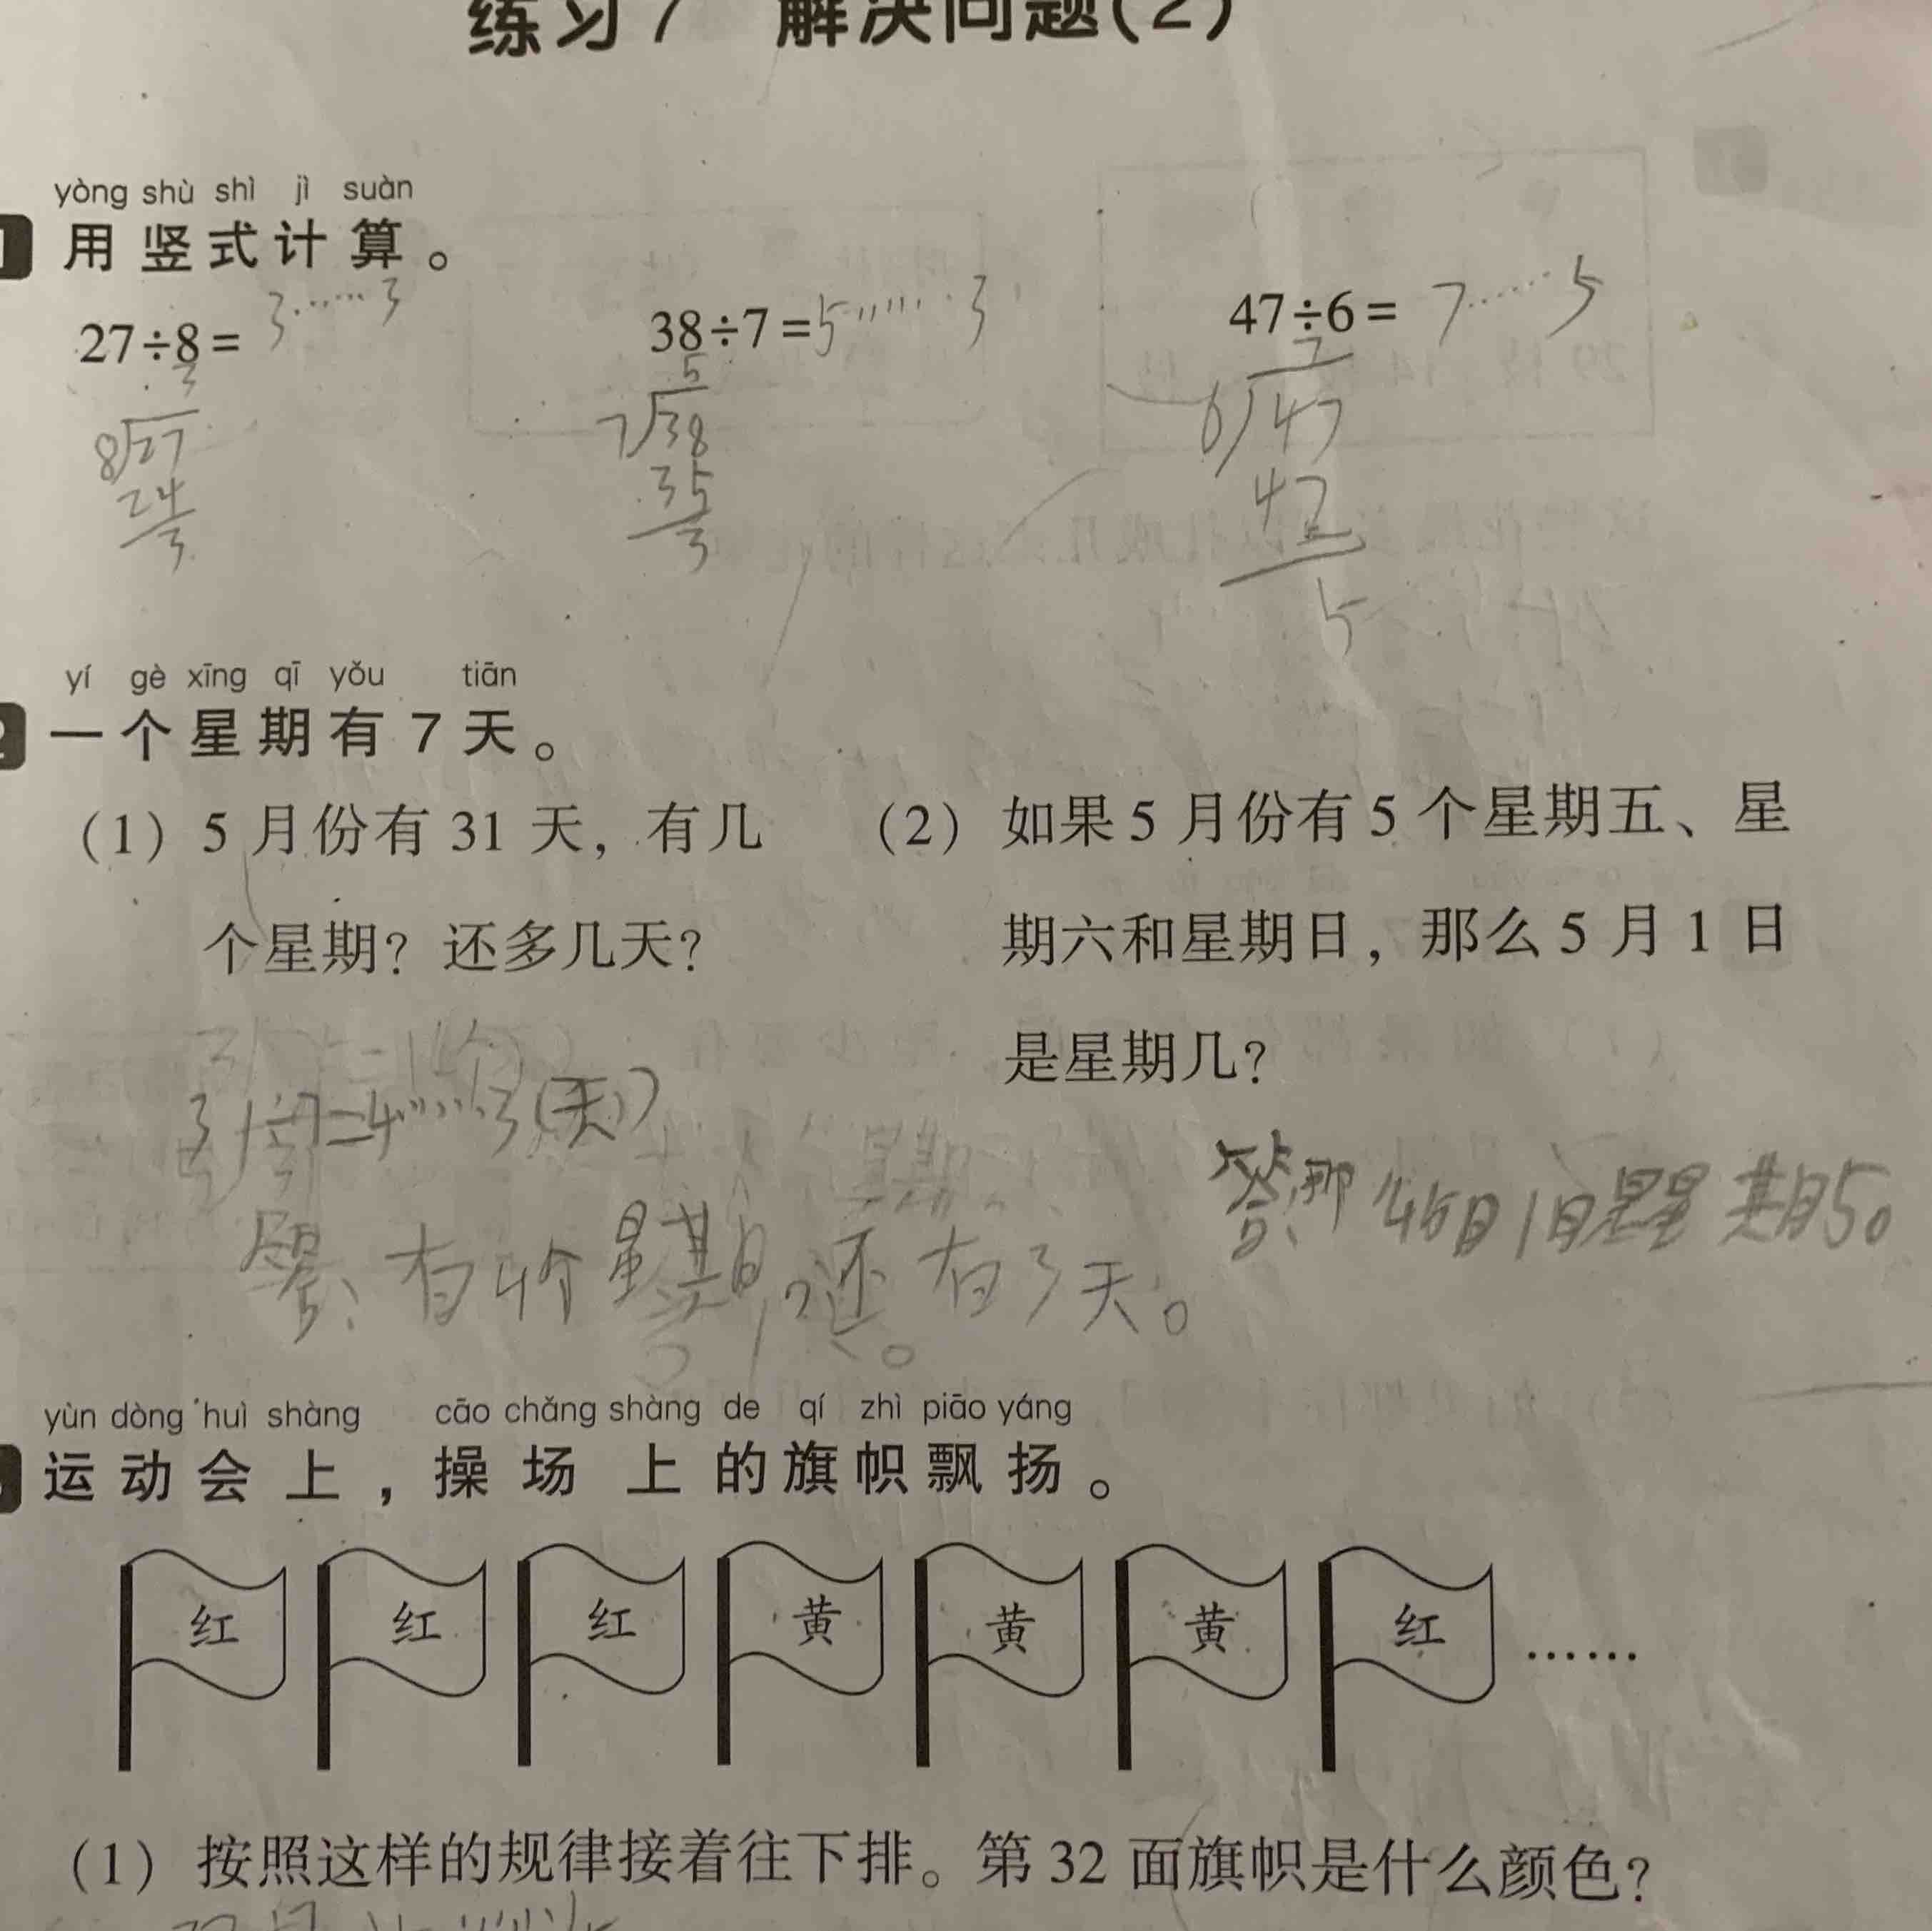 练习7 解决问题(2)
yòng shù shì jì suàn
用竖式计算。
27÷8= 3……3
38÷7=5……3
47÷6= 7……5
3
8 27
24
3
5
7 38
35
3
7
6 47
42
5
yí gè xīng qī yǒu tiān
2 一个星期有7天。
(1) 5月份有31天，有几
个星期？还多几天？
31÷7=4……3(天)
答：有4个星期，还有3天。
(2) 如果5月份有5个星期五、星
期六和星期日，那么5月1日
是星期几？
1日是星期5。
yùn dòng huì shàng cāo chǎng shàng de qí zhì piāo yáng
运动会上，操场上的旗帜飘扬。
红 红 红 黄 黄 黄 红 ……
(1) 按照这样的规律接着往下排。第32面旗帜是什么颜色？